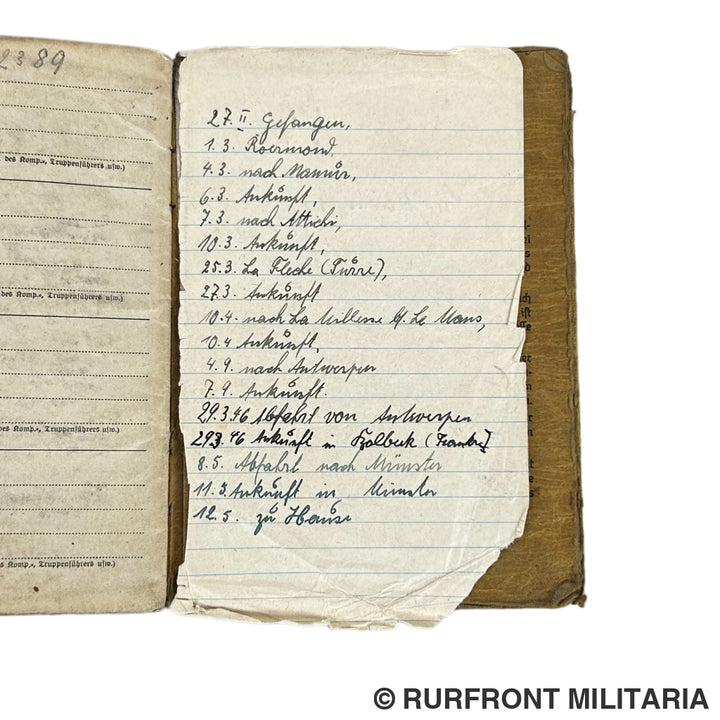 2389
des Komp.-, Truppenführers usw.)
des Komp.-, Truppenführers usw.)
des Komp.-, Truppenführers usw.)
s Komp.-, Truppenführers usw.)
27. II. Gefangen,
1.3. Roermond,
4.3. nach Namür,
6.3. Ankunft,
7.3. nach Attichi,
10.3. Ankunft,
25.3. La Fleche (Türre),
27.3. Ankunft
10.4. nach La Millesse b/. Le Mans,
10.4 Ankunft,
4.9. nach Antwerpen
7.9. Ankunft.
29.3.46 Abfahrt von Antwerpen
29.3.46 Ankunft in Kolbeck
8.5. Abfahrt nach Münster
11.5. Ankunft in Münster
12.5. zu Hause
© RURFRONT MILITARIA